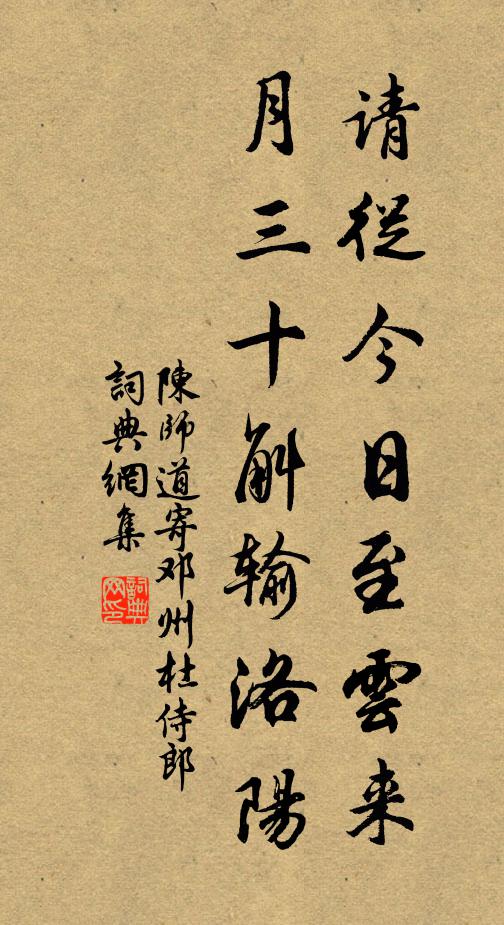 请從今日至雲来
月三十斛输洛陽
陳師道寄邓州杜侍郎
詞典網集
詞典网印